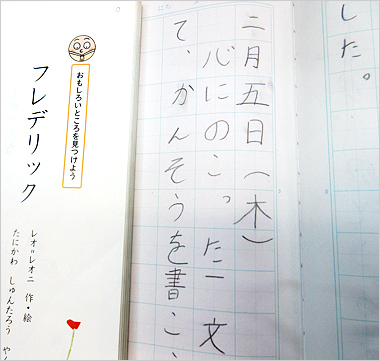 した。
二月五日(木)
心にのこった一文
て、かんそうを書こ
おもしろいところを見つけよう
フレデリック
レオ=レオニ 作・絵
たにかわ しゅんたろう や